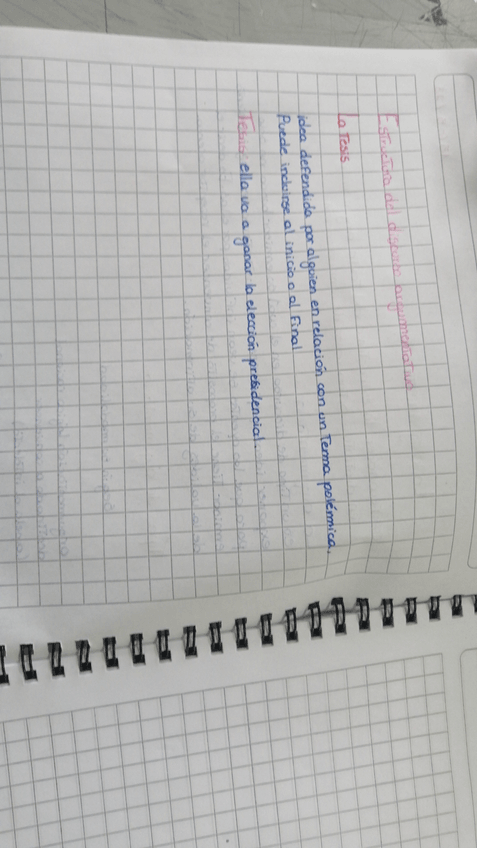 Estructura del discurso argumentativo
La Tesis
idea defendida por alguien en relación con un Tema polémica.
Puede incluirse al inicio o al Final
Tesis: ella va a ganar la elección presidencial.